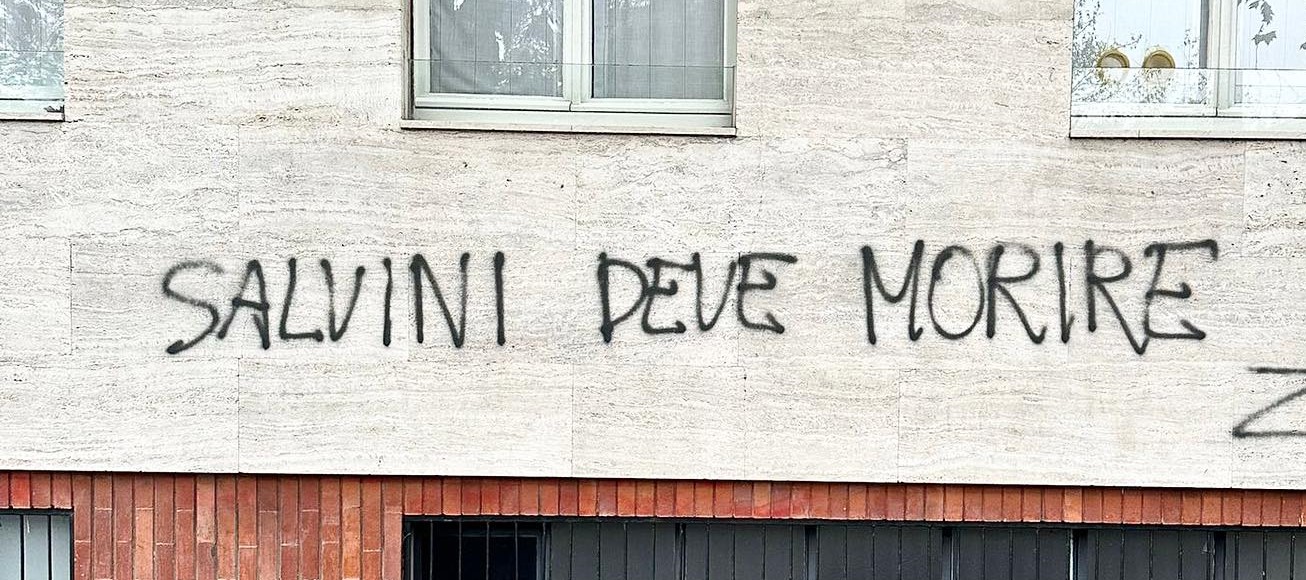 SALVINI DEVE MORIRE
Z